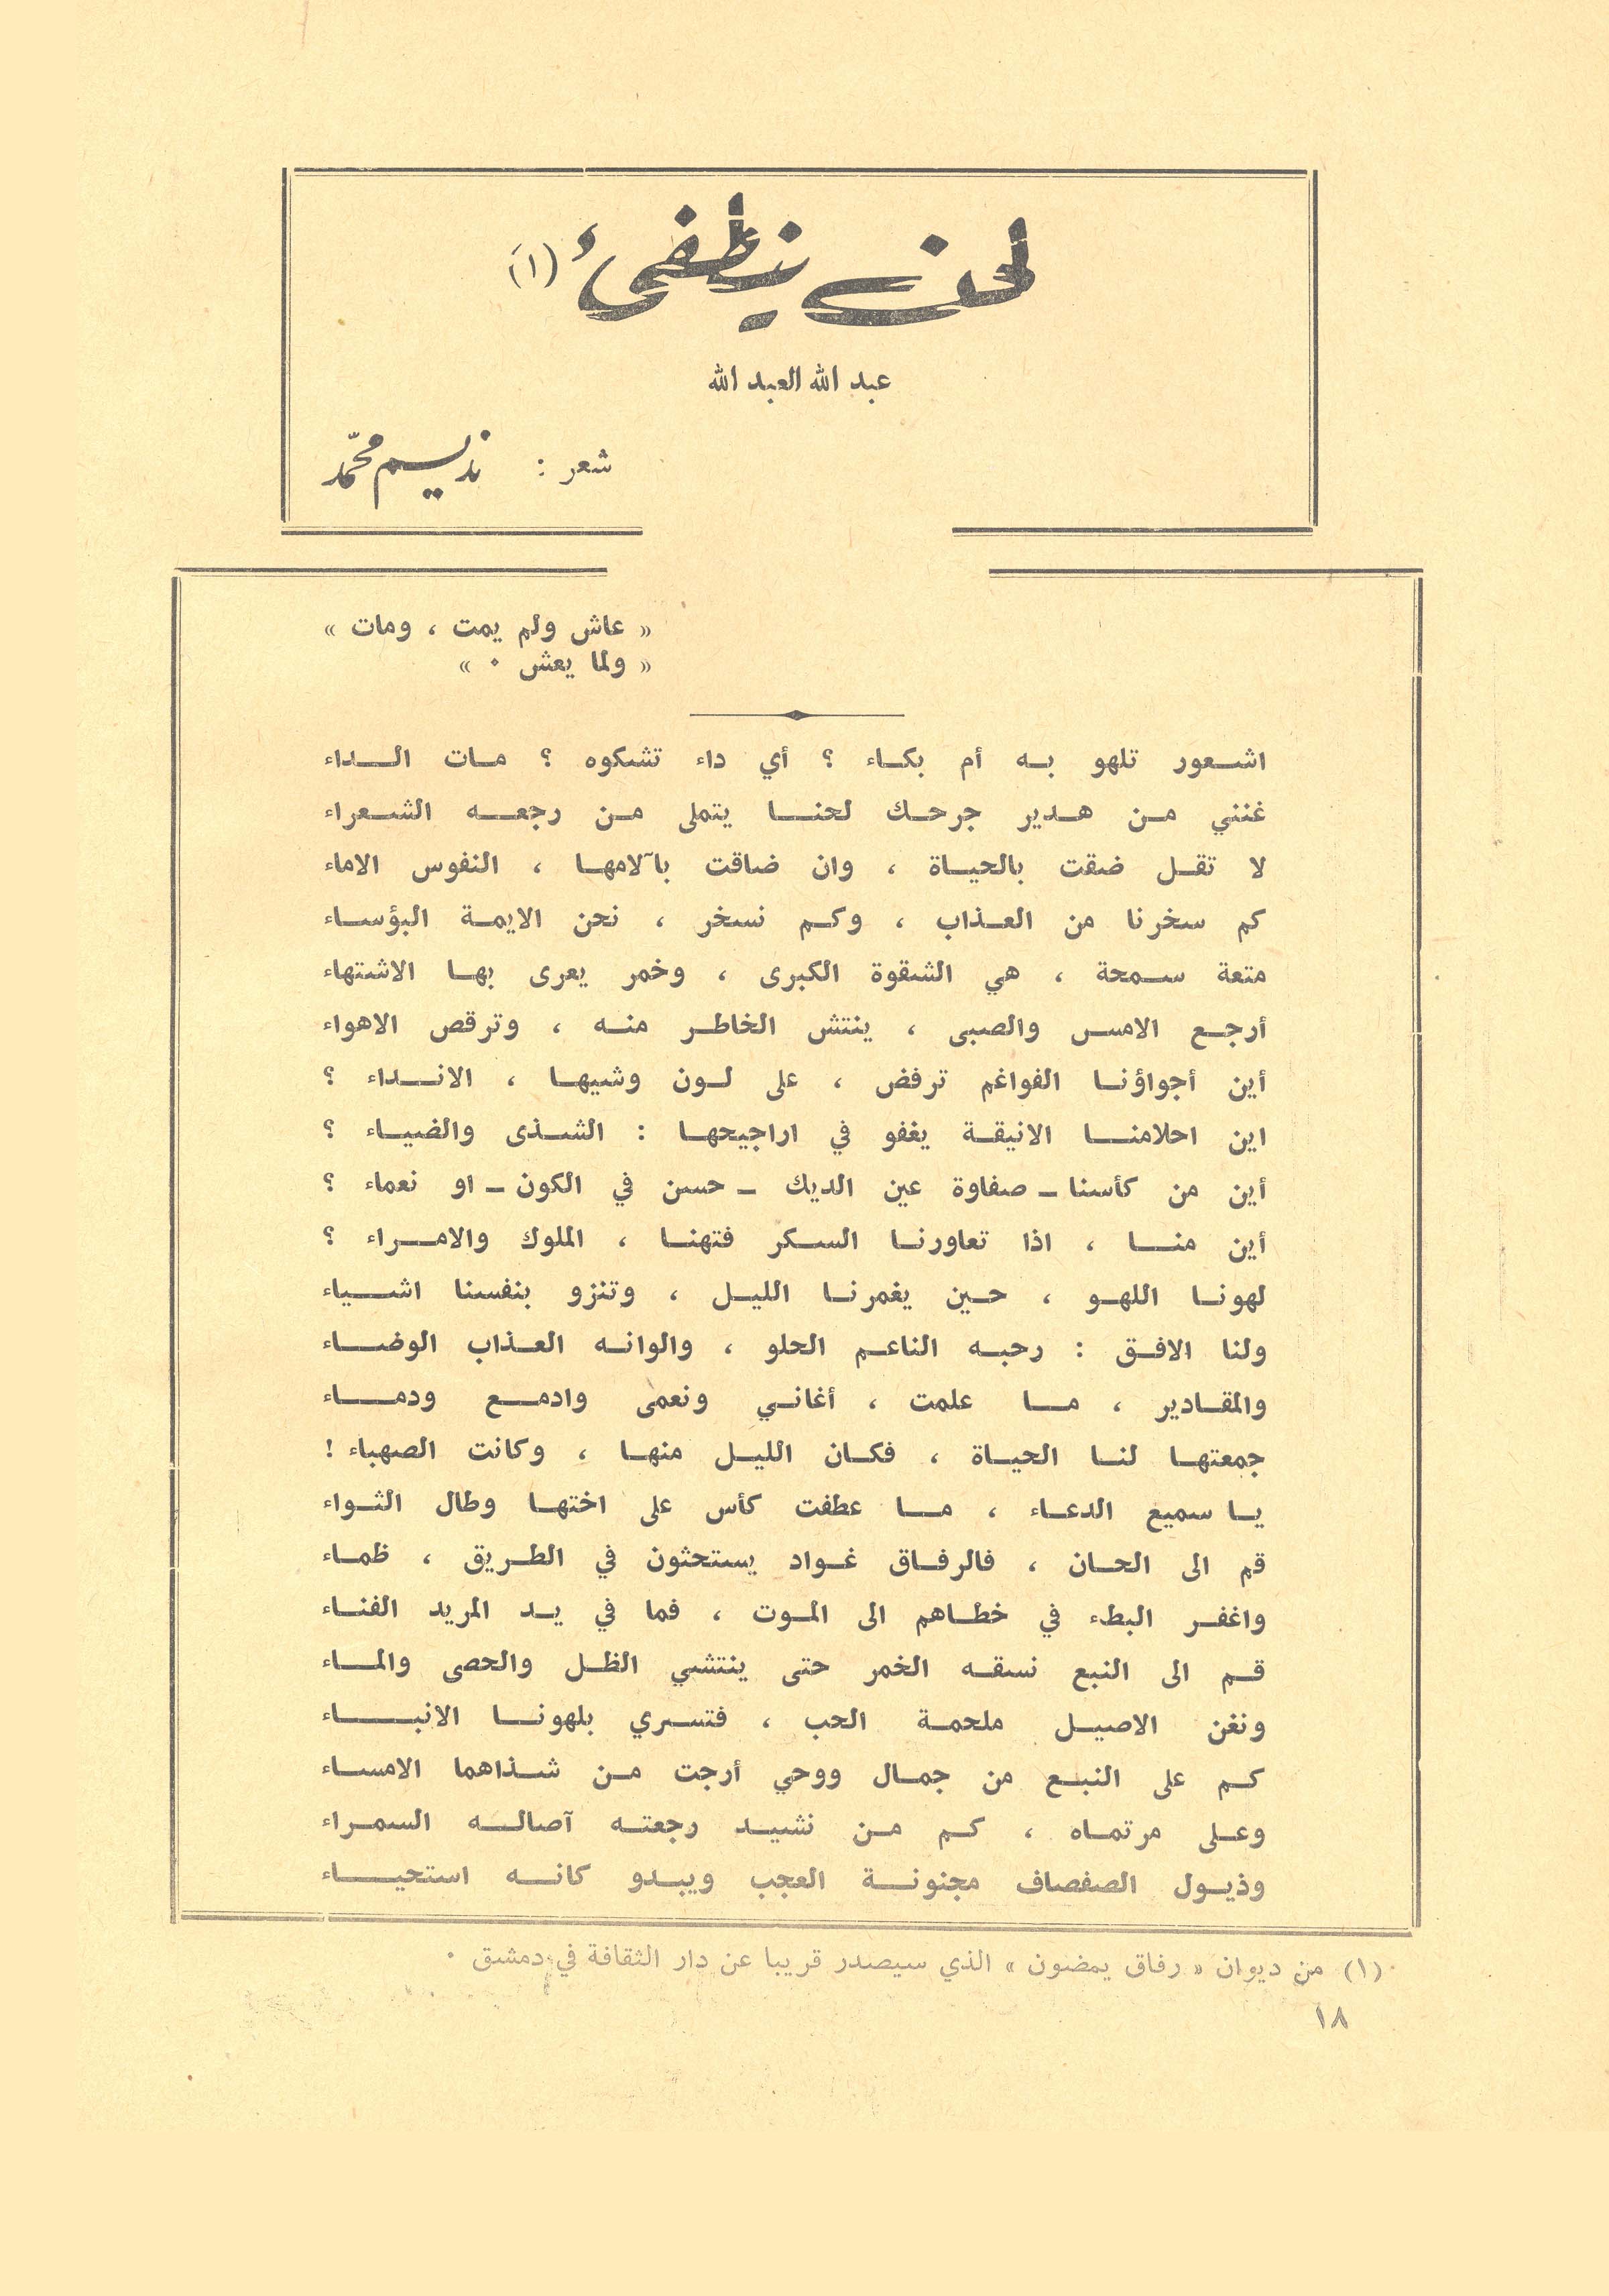 لحن ينطفئ (١)
عبد الله العبد الله
شعر : نديم محمّد
« عاش ولم يمت ، ومات »
« ولما يعش ٠ »
اشعور تلهو به أم بكاء ؟ أي داء تشكوه ؟ مات الداء
غنني من هدير جرحك لحنا يتملى من رجعه الشعراء
لا تقل ضقت بالحياة ، وان ضاقت بآلامها ، النفوس الاماء
كم سخرنا من العذاب ، وكم نسخر ، نحن الايمة البؤساء
متعة سمحة ، هي الشقوة الكبرى ، وخمر يعرى بها الاشتهاء
أرجع الامس والصبى ، ينتش الخاطر منه ، وترقص الاهواء
أين أجواؤنا الفواغم ترفض ، على لون وشيها ، الانداء ؟
اين احلامنا الانيقة يغفو في اراجيحها : الشذى والضياء ؟
أين من كأسنا - صفاوة عين الديك - حسن في الكون - او نعماء ؟
أين منا ، اذا تعاورنا السكر فتهنا ، الملوك والامراء ؟
لهونا اللهو ، حين يغمرنا الليل ، وتنزو بنفسنا اشياء
ولنا الافق : رحبه الناعم الحلو ، والوانه العذاب الوضاء
والمقادير ، ما علمت ، أغاني ونعمى وادمع ودماء
جمعتها لنا الحياة ، فكان الليل منها ، وكانت الصهباء !
يا سميع الدعاء ، ما عطفت كأس على اختها وطال الثواء
قم الى الحان ، فالرفاق غواد يستحثون في الطريق ، ظماء
واغفر البطء في خطاهم الى الموت ، فما في يد المريد الفناء
قم الى النبع نسقه الخمر حتى ينتشي الظل والحصى والماء
ونغن الاصيل ملحمة الحب ، فتسري بلهونا الانباء
كم على النبع من جمال ووحي أرجت من شذاهما الامساء
وعلى مرتماه ، كم من نشيد رجعته آصاله السمراء
وذيول الصفصاف مجنونة العجب ويبدو كانه استحياء
(١) من ديوان « رفاق يمضون » الذي سيصدر قريبا عن دار الثقافة في دمشق ٠
١٨